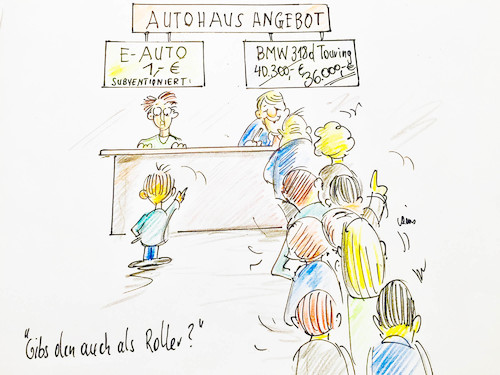 AUTOHAUS ANGEBOT
E-AUTO
1,-€
SUBVENTIONIERT!
BMW 318d Touring
40.300,-€
36.000,-€
"Gibs den auch als Roller?"